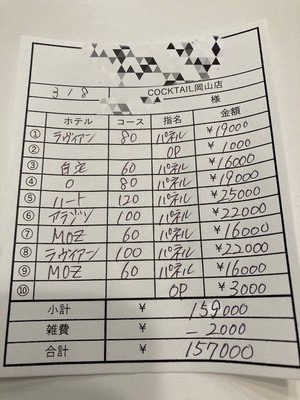 COCKTAIL岡山店
318 様
ホテル コース 指名 金額
① ラヴィアン 80 パネル ¥19000
② OP ¥1000
③ 自宅 60 パネル ¥16000
④ O 80 パネル ¥19000
⑤ ハート 120 パネル ¥25000
⑥ アラジン 100 パネル ¥22000
⑦ MOZ 60 パネル ¥16000
⑧ ラヴィアン 100 パネル ¥22000
⑨ MOZ 60 パネル ¥16000
⑩ OP ¥3000
小計 ¥ 159000
雑費 ¥ -2000
合計 ¥ 157000